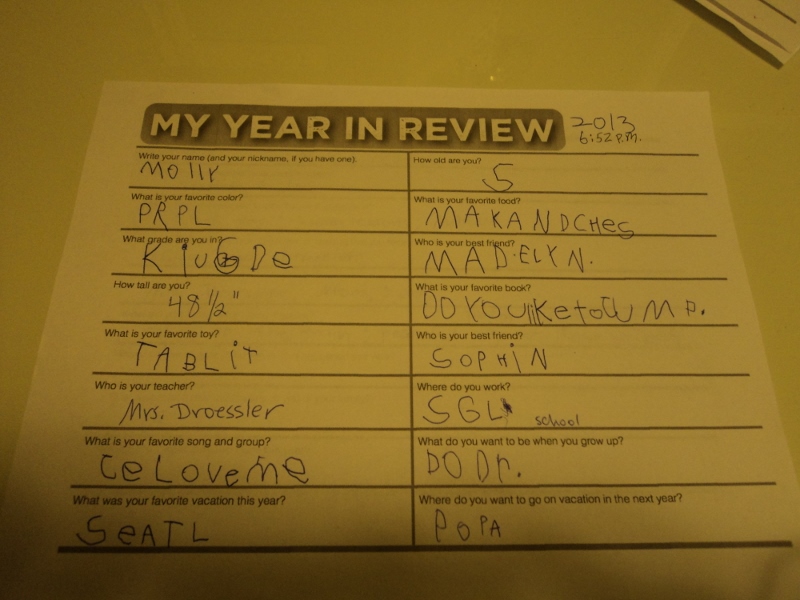 MY YEAR IN REVIEW
2013
6:52 p.m.
Write your name (and your nickname, if you have one).
Molly
How old are you?
5
What is your favorite color?
PRPL
What is your favorite food?
MAKANDCHes
What grade are you in?
Who is your best friend?
MADELYN.
How tall are you?
48 1/2"
What is your favorite book?
DO YOU liKe to JUMP.
What is your favorite toy?
TABLiT
Who is your best friend?
SOPHiN
Who is your teacher?
Mrs. Droessler
Where do you work?
SGL school
What is your favorite song and group?
CeLoveMe
What do you want to be when you grow up?
DODr.
What was your favorite vacation this year?
SeATL
Where do you want to go on vacation in the next year?
POPA